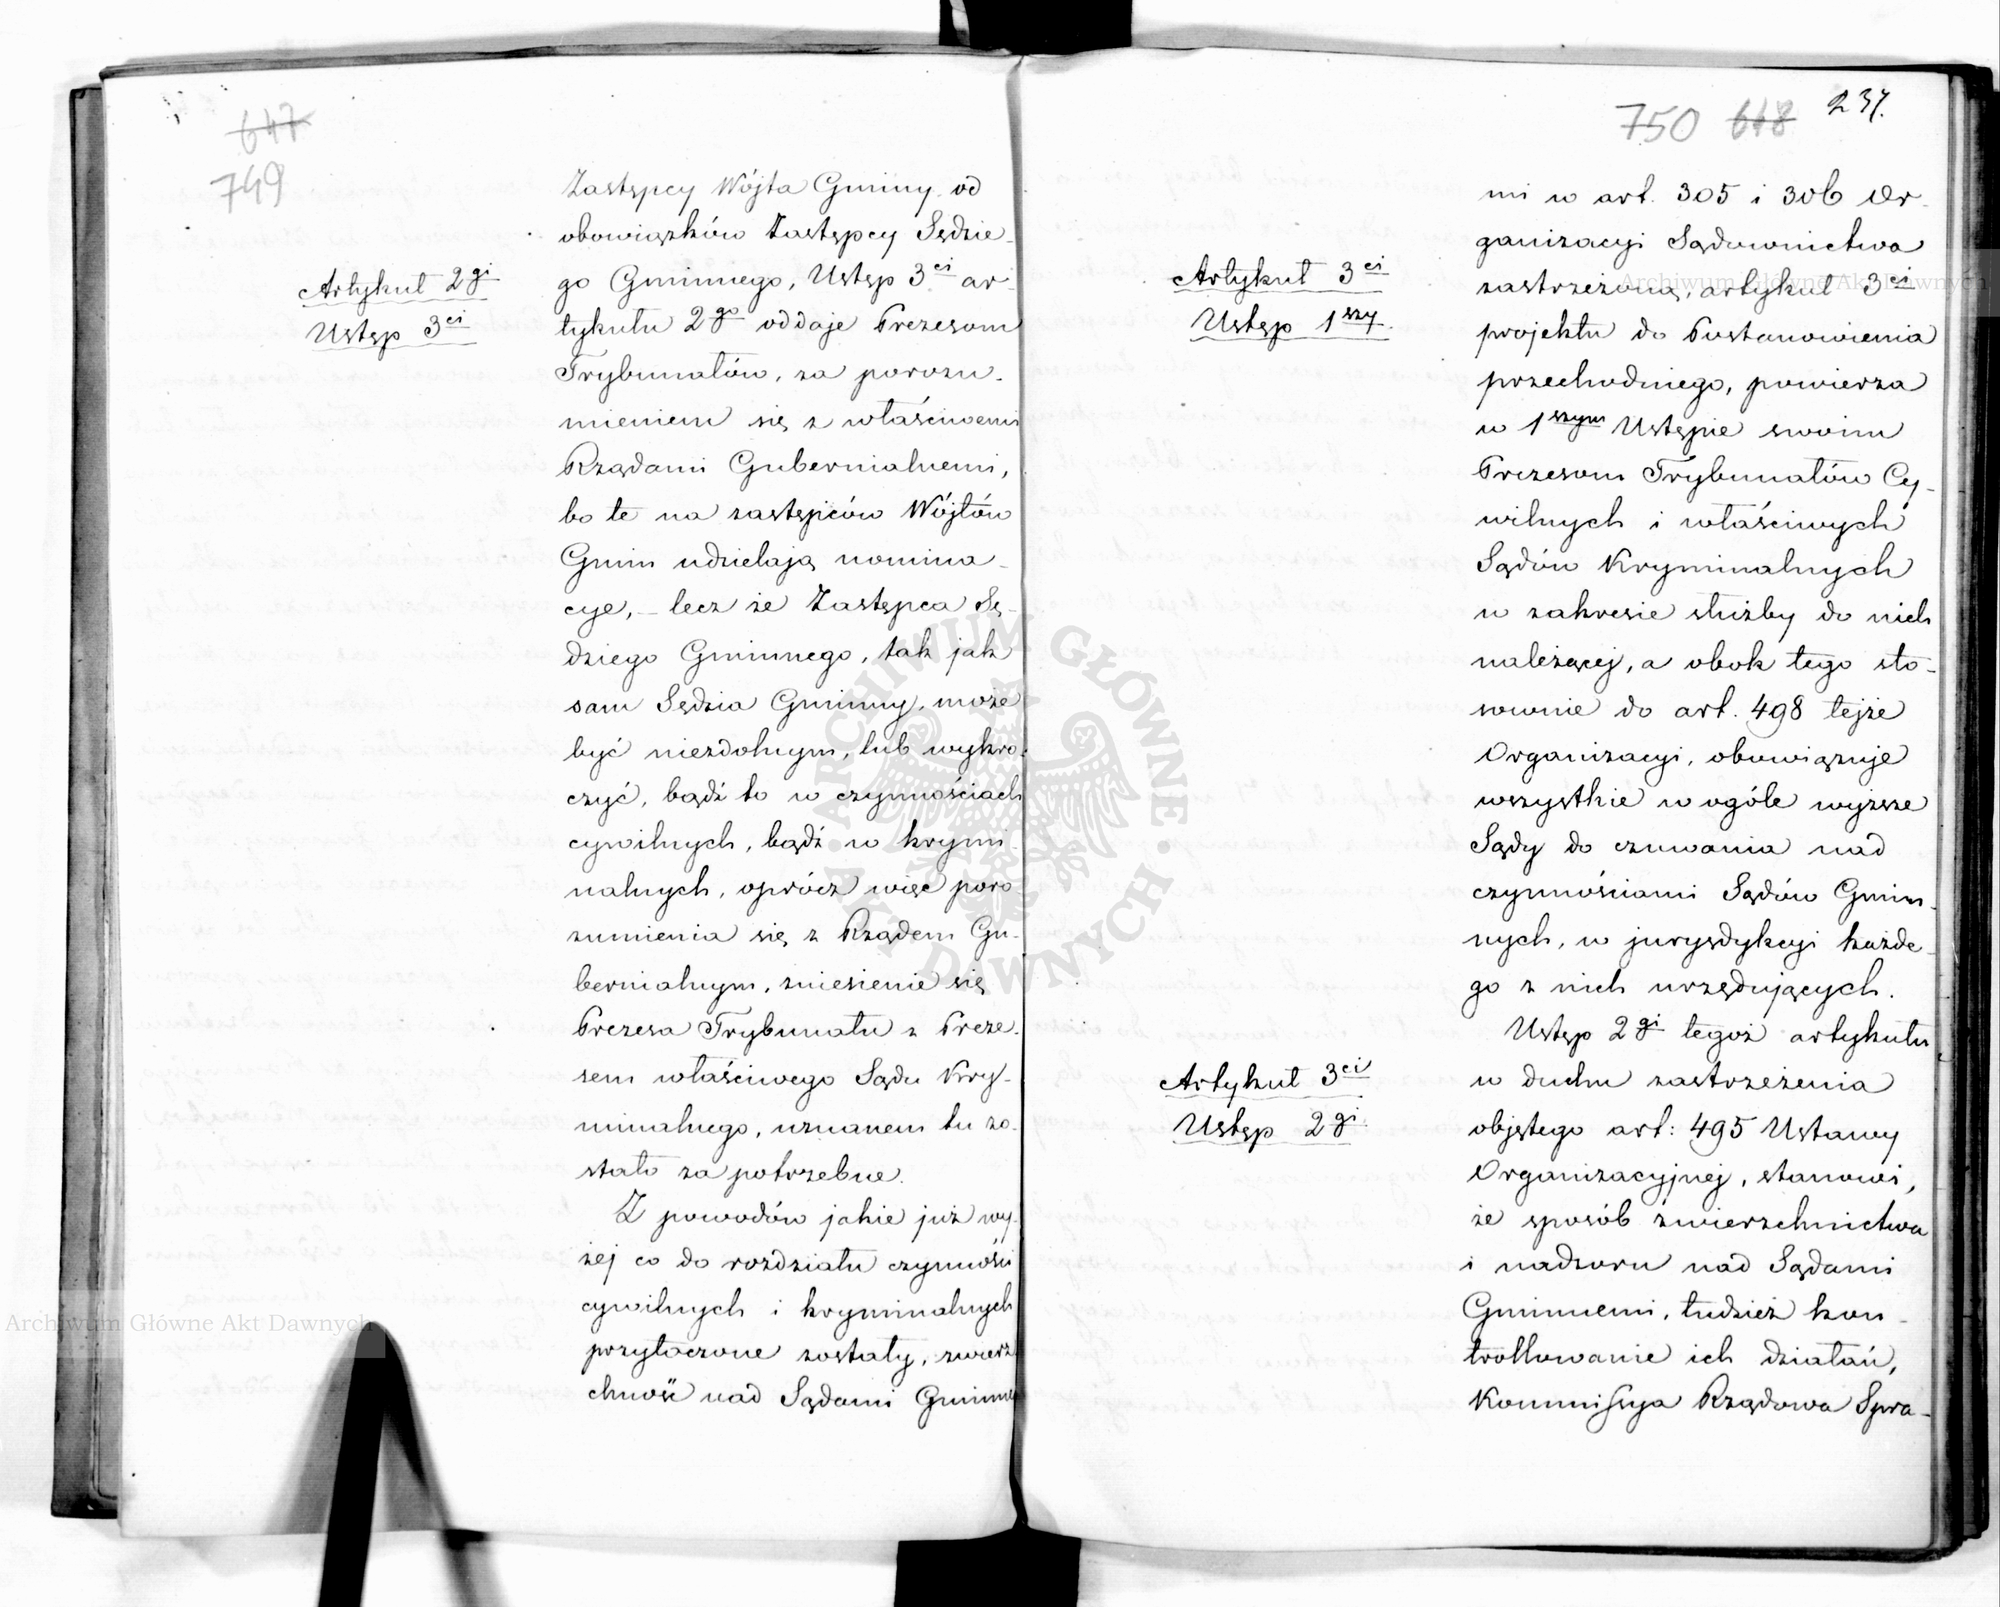 647
749
Artykuł 2gi
Ustęp 3ci
Zastępcy Wójta Gminy od
obowiązków Zastępcy Sędzie-
go Gminnego, Ustęp 3ci ar-
tykułu 2go oddaje Prezesom
Trybunałów, za porozu-
mieniem się z właściwemi
Rządami Gubernialnemi,
bo te na zastępców Wójtów
Gmin udzielają nomina-
cye, – lecz że Zastępca Sę-
dziego Gminnego, tak jak
sam Sędzia Gminny, może
być niezdolnym, lub wykro-
czyć, bądź to w czynnościach
cywilnych, bądź w krymi-
nalnych, oprócz więc poro
zumienia się z Rządem Gu-
bernialnym, zniesienie się
Prezesa Trybunału z Preze-
sem właściwego Sądu Kry-
minalnego, uznanem tu zo-
stało za potrzebne.
Z powodów jakie już wy-
żej co do rozdziału czynności
cywilnych i kryminalnych
przytoczone zostały, zwierz
chność nad Sądami Gminne
750 648 237.
Artykuł 3ci
Ustęp 1szy.
mi w art. 305 i 306 Or-
ganizacyi Sądownictwa
zastrzeżoną, artykuł 3ci
projektu do Postanowienia
przechodniego, powierza
w 1szym Ustępie swoim
Prezesom Trybunałów Cy-
wilnych i właściwych
Sądów Kryminalnych
w zakresie służby do nich
należącej, a obok tego sto-
sownie do art. 498 tejże
Organizacyi, obowiązuje
wszystkie w ogóle wyższe
Sądy do czuwania nad
czynnościami Sądów Gmin-
nych, w jurysdykcyi każde-
go z nich urzędujących.
Artykuł 3ci
Ustęp 2gi
Ustęp 2gi tegoż artykułu
w duchu zastrzeżenia
objętego art: 495 Ustawy
Organizacyjnej, stanowi,
że sposób zwierzchnictwa
i nadzoru nad Sądami
Gminnemi, tudzież kon-
trollowanie ich działań,
Kommissya Rządowa Spra-
Archiwum Główne Akt Dawnych
Archiwum Główne Akt Dawnych
ARCHIWUM GŁÓWNE · AKT DAWNYCH ·